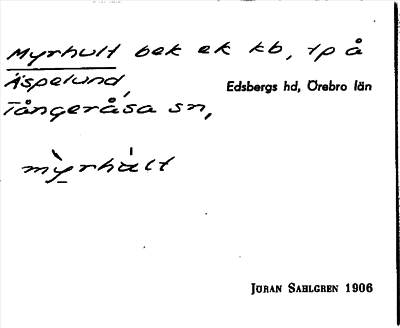 Myrhult bek ek kb, tp å
Äspelund,
Edsbergs hd, Örebro län
Tångeråsa sn,
mỳrhált
JÖRAN SAHLGREN 1906